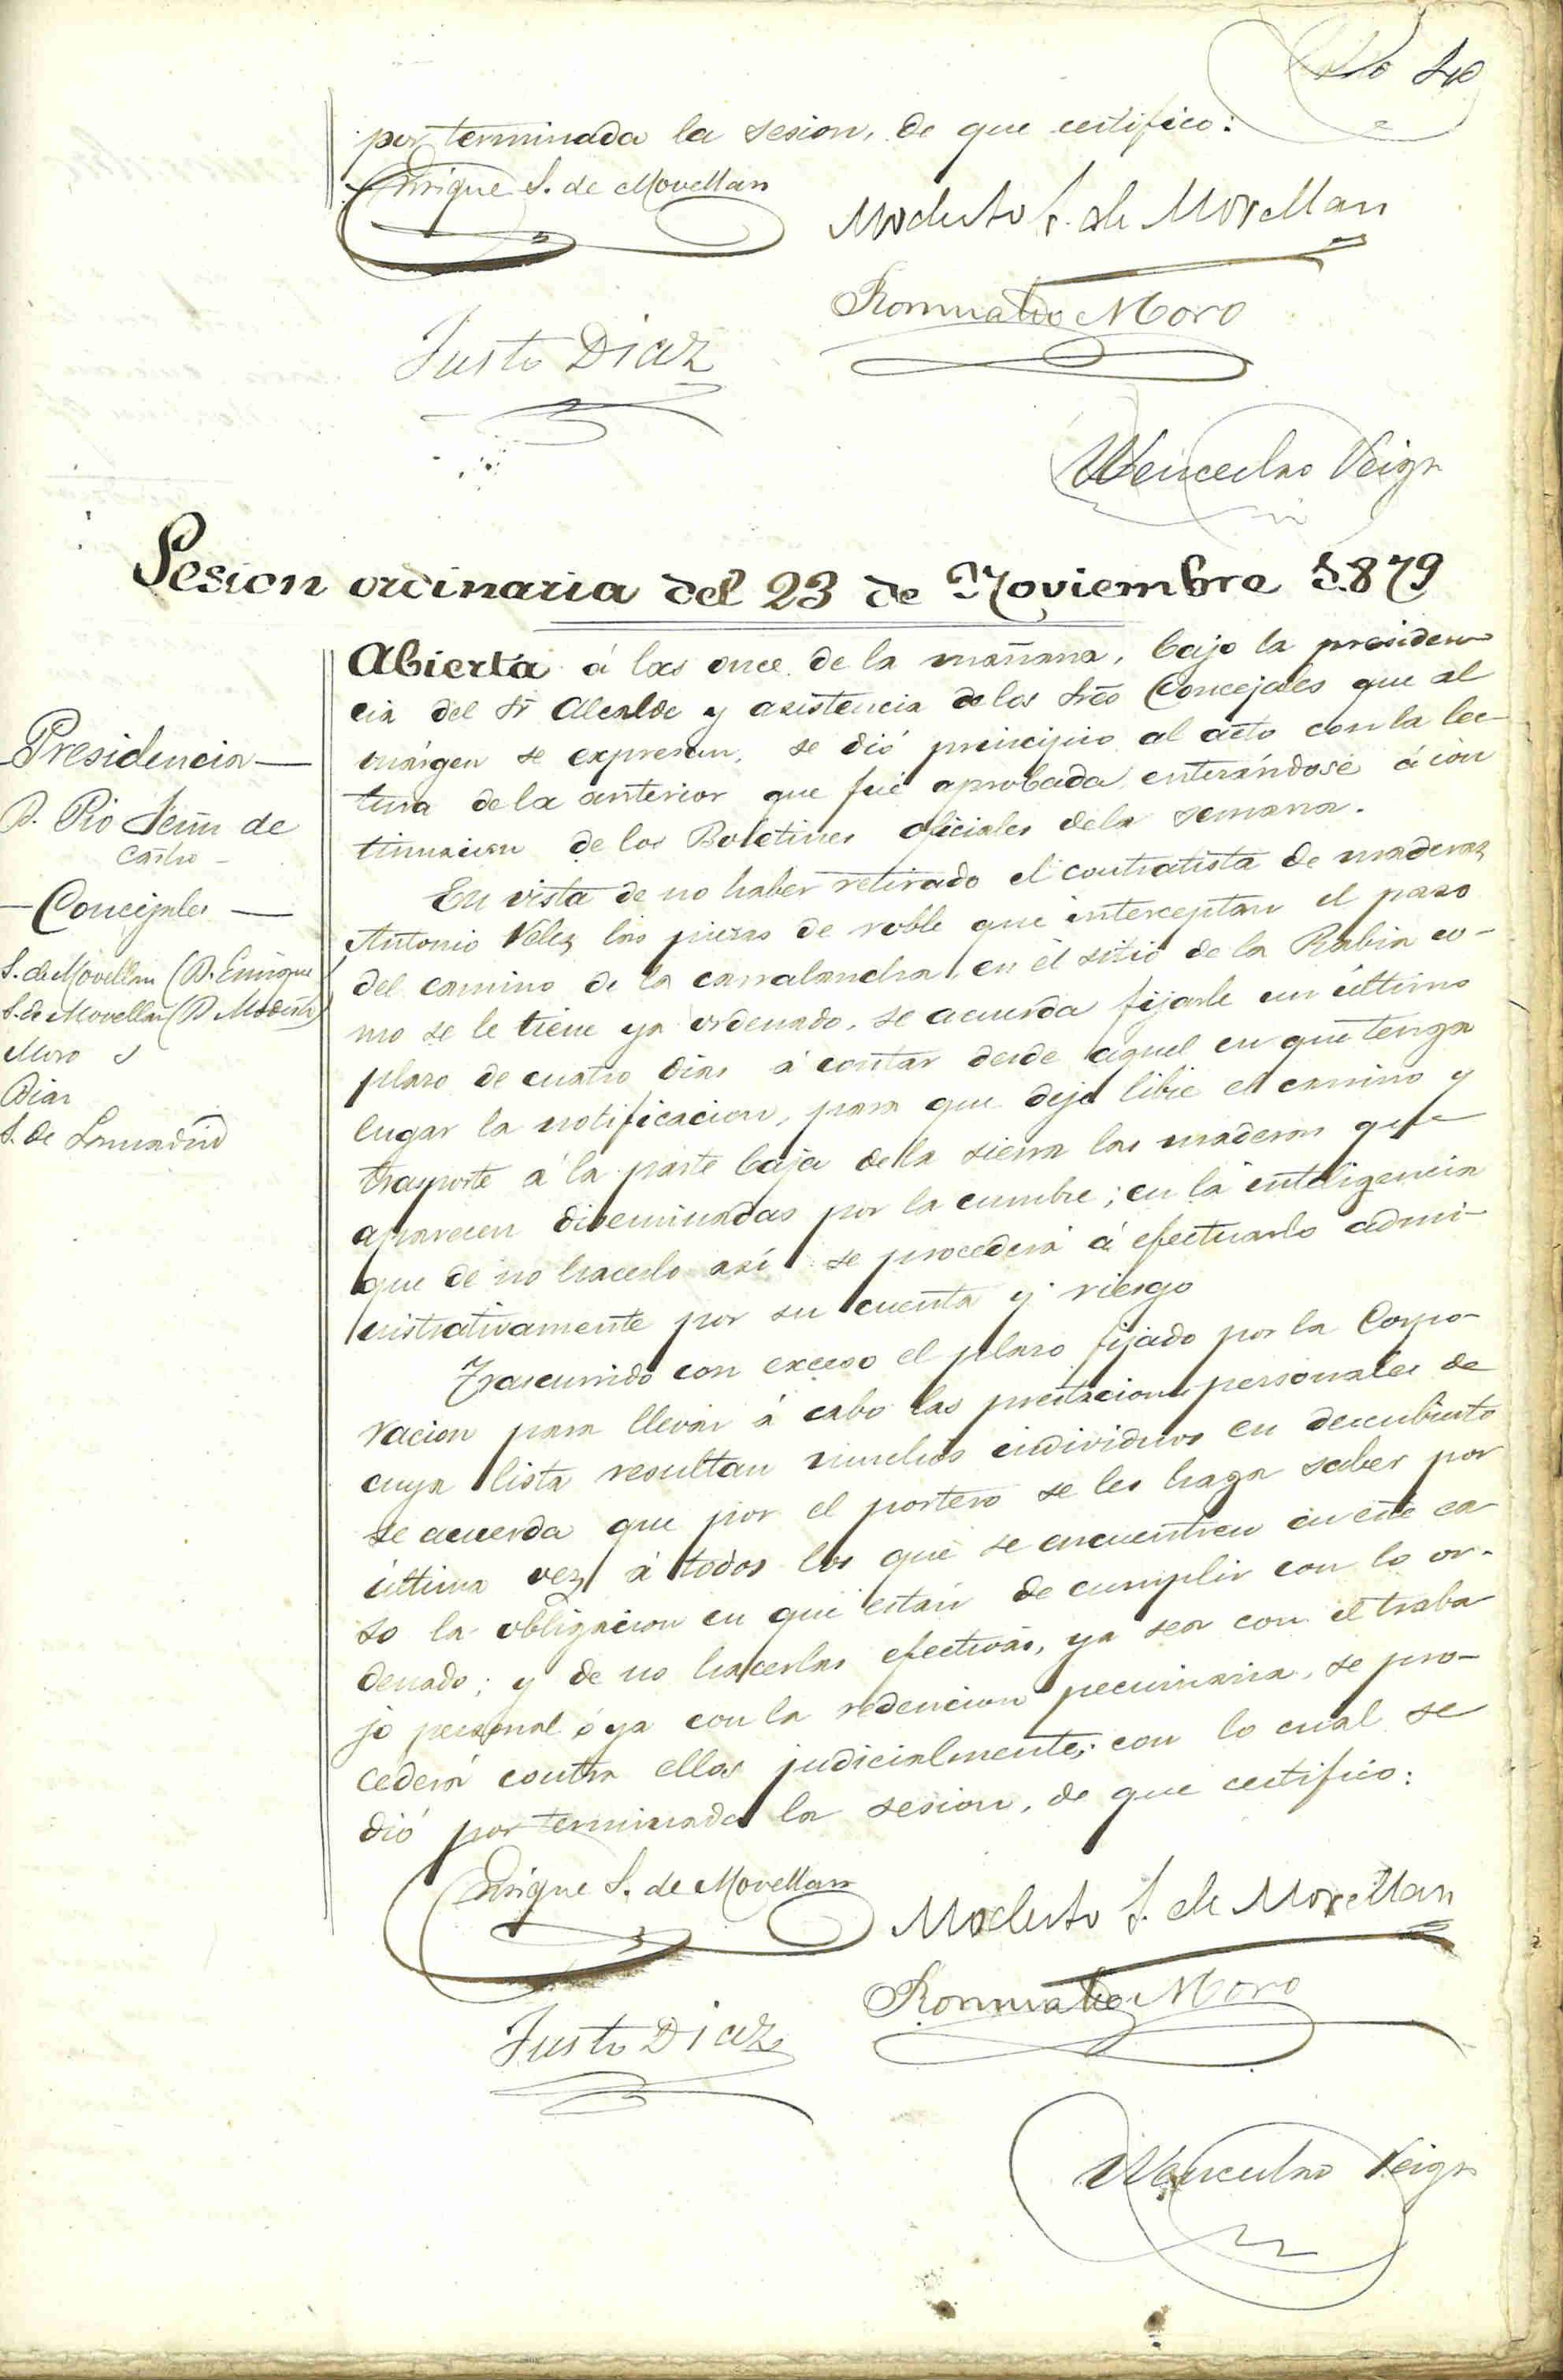 40
por terminada la sesion, de que certifico:
Enrique S. de Movellan
Modesto S. de Movellan
Romualdo Moro
Justo Diaz
Wenceslao Veiga
Sesion ordinaria del 23 de Noviembre 1.879
Presidencia
D. Pio
de
Castro
Concejales
S. de Movellan (D. Enrique
S. de Movellan (D. Modesto)
Moro
Diaz
S. de
Abierta á las once de la mañana, bajo la presiden
cia del Sr Alcalde y asistencia de los Sres Concejales que al
márgen se expresan, se dió principio al acto con la lec-
tura de la anterior que fué aprobada, enterándose á con
tinuacion de los Boletines oficiales de la semana.
En vista de no haber retirado el contratista de maderas
Antonio Velez las piezas de roble que interceptan el paso
del camino de la en el sitio de la Rabia co-
mo se le tiene ya ordenado, se acuerda fijarle un último
plazo de cuatro dias á contar desde aquel en que tenga
lugar la notificacion, para que deje libre el camino y
trasporte á la parte baja de la sierra las maderas que
aparecen diseminadas por la cumbre; en la inteligencia
que de no hacerlo así se procederá á efectuarlo admi-
nistrativamente por su cuenta y riesgo
Trascurrido con exceso el plazo fijado por la Corpo-
racion para llevar á cabo las prestaciones personales de
cuya lista resultan muchos individuos en descubierto
se acuerda que por el portero se les haga saber por
última vez á todos los que se encuentren en este ca
so la obligacion en que están de cumplir con lo or-
denado; y de no hacerlas efectivas, ya sea con el traba
jo personal ó ya con la redencion pecuniaria, se pro-
cederá contra ellos judicialmente; con lo cual se
dió por terminada la sesion, de que certifico:
Enrique S. de Movellan
Modesto S. de Movellan
Romualdo Moro
Justo Diaz
Wenceslao Veiga